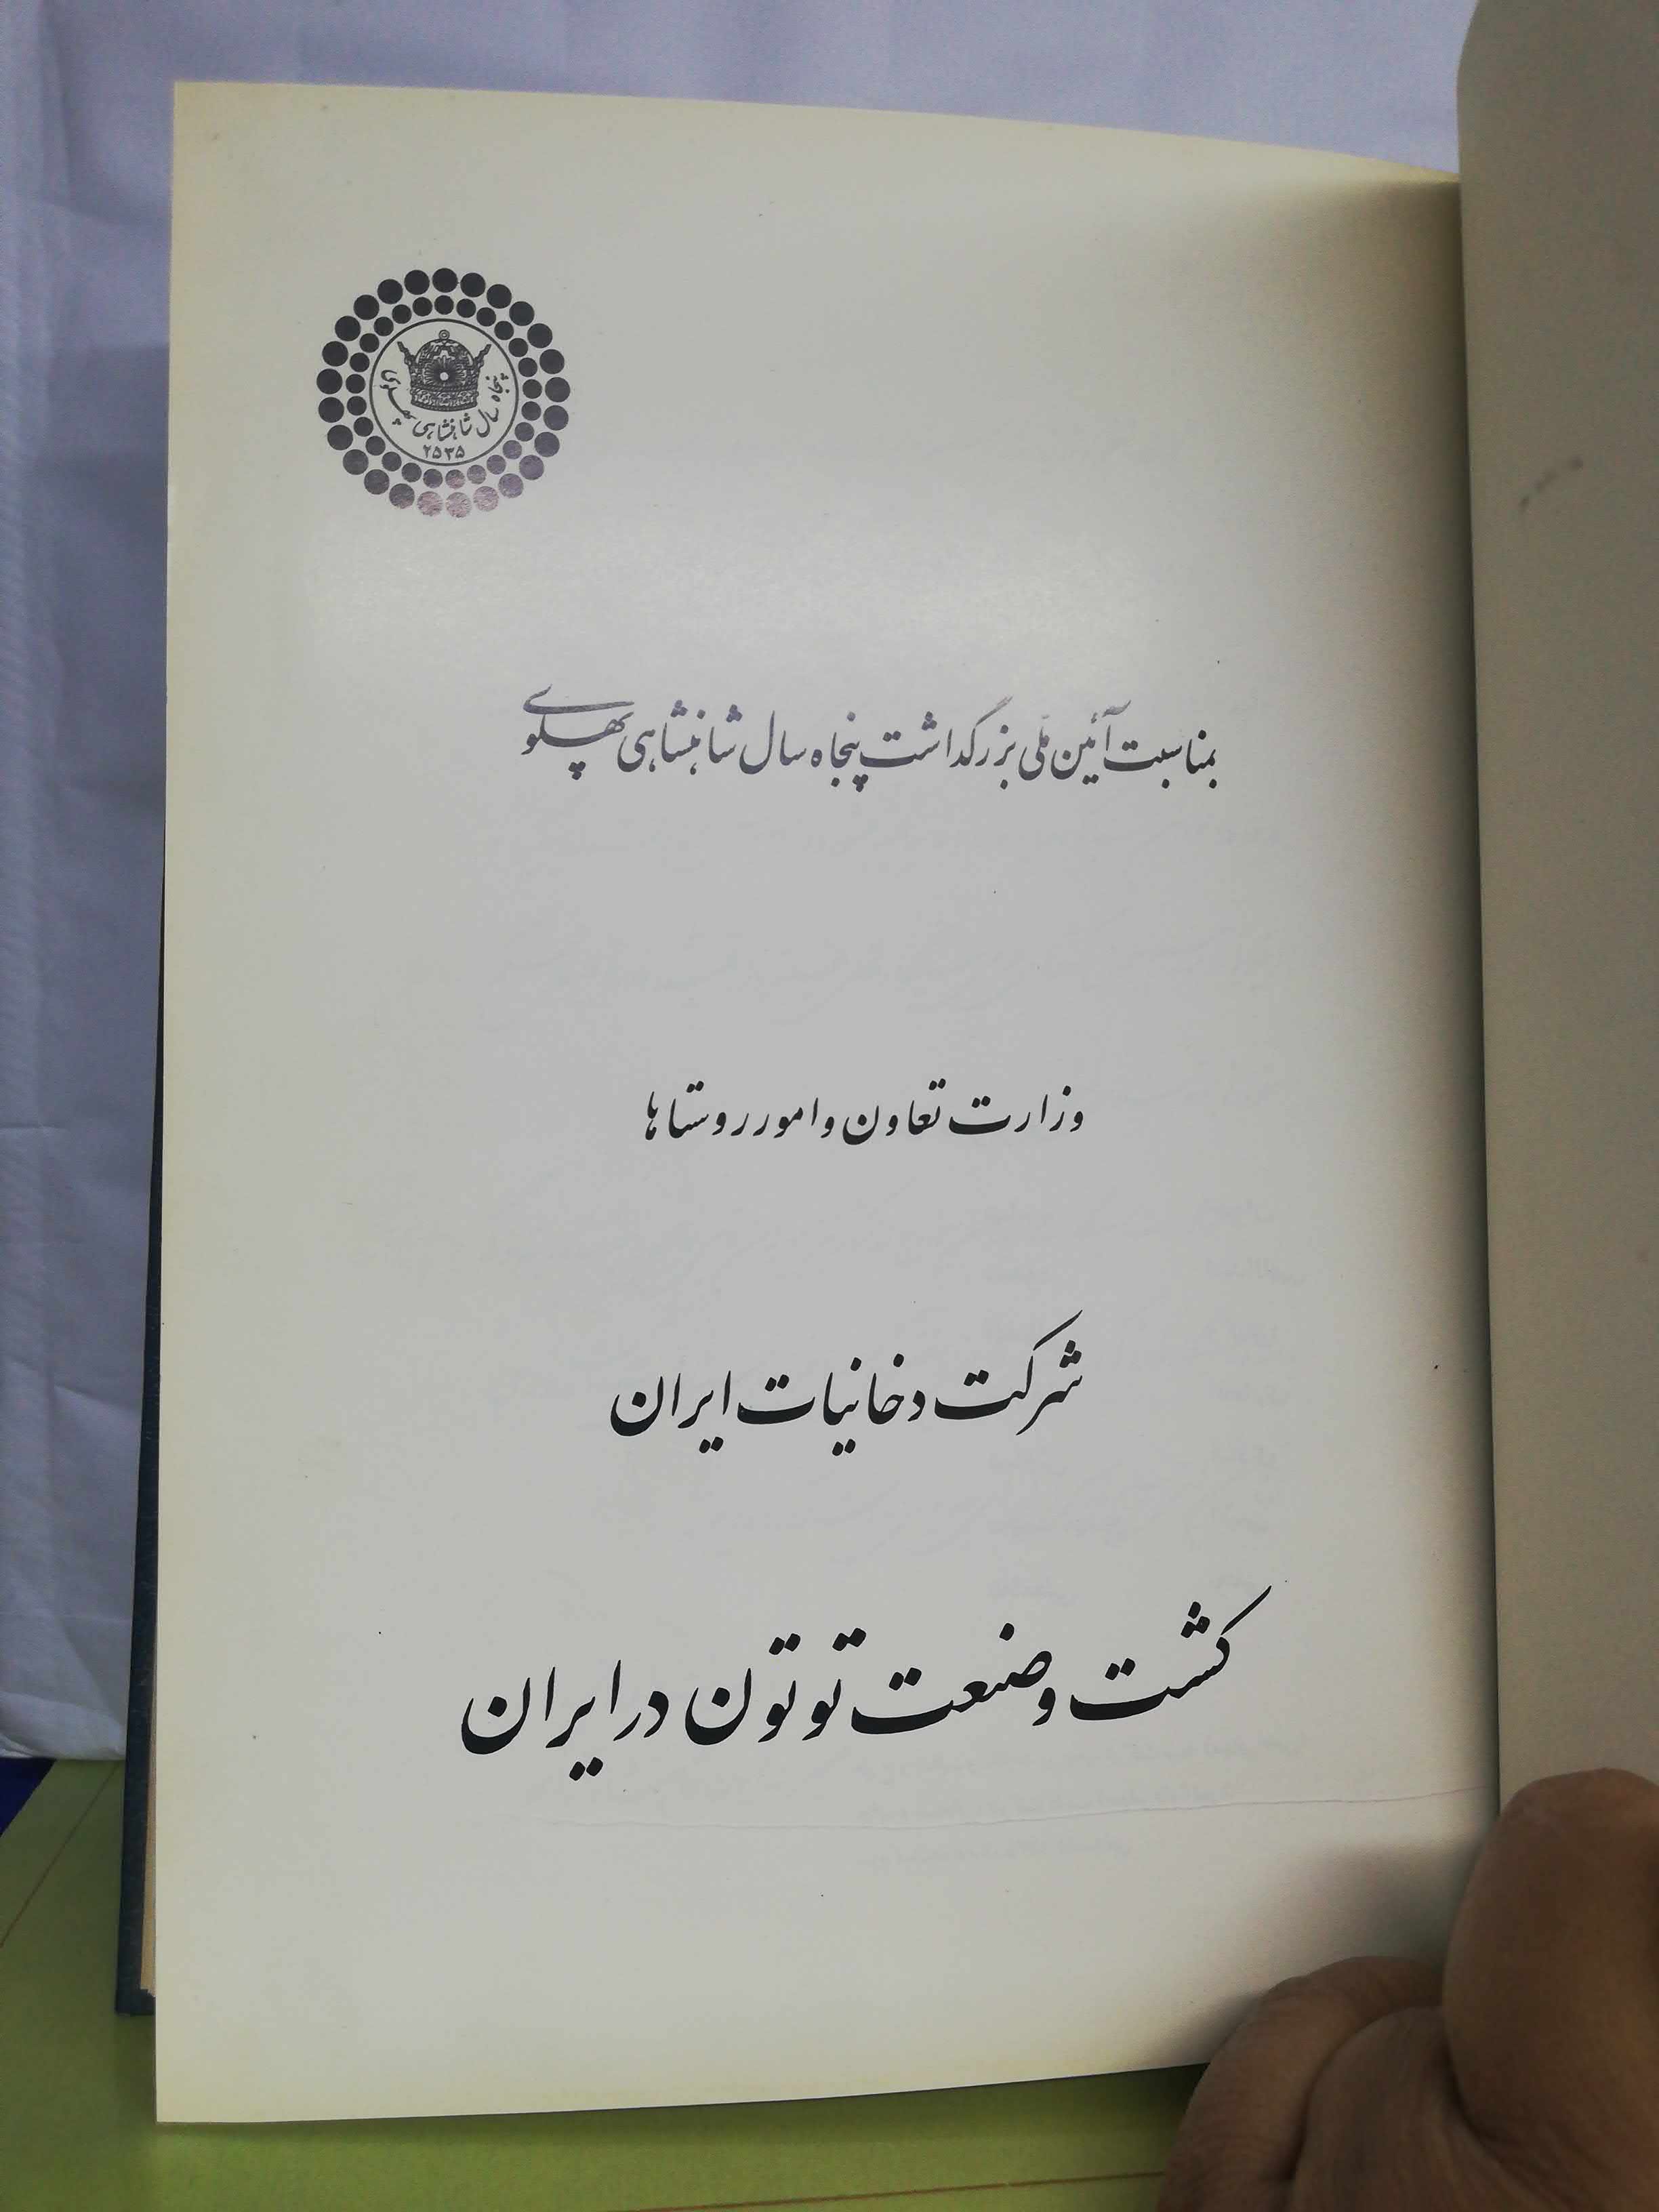 پنجاه سال شاهنشاهی پهلوی
۲۵۳۵
بمناسبت آئین ملی بزرگداشت پنجاه سال شاهنشاهی پهلوی
وزارت تعاون و امور روستاها
شرکت دخانیات ایران
کشت و صنعت توتون در ایران